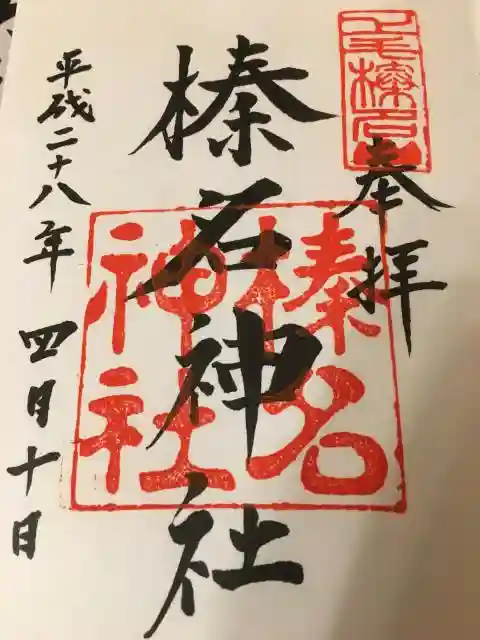 奉拝
上毛榛名山
榛名神社
榛名神社
平成二十八年 四月十日